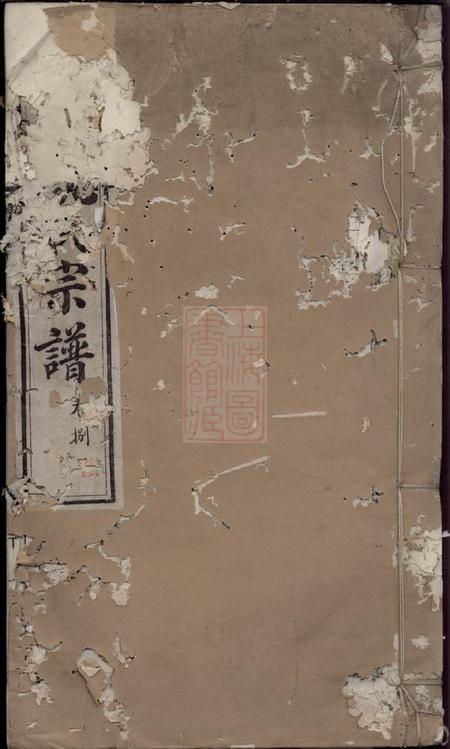 氏宗譜
卷捌
上海圖
書館藏